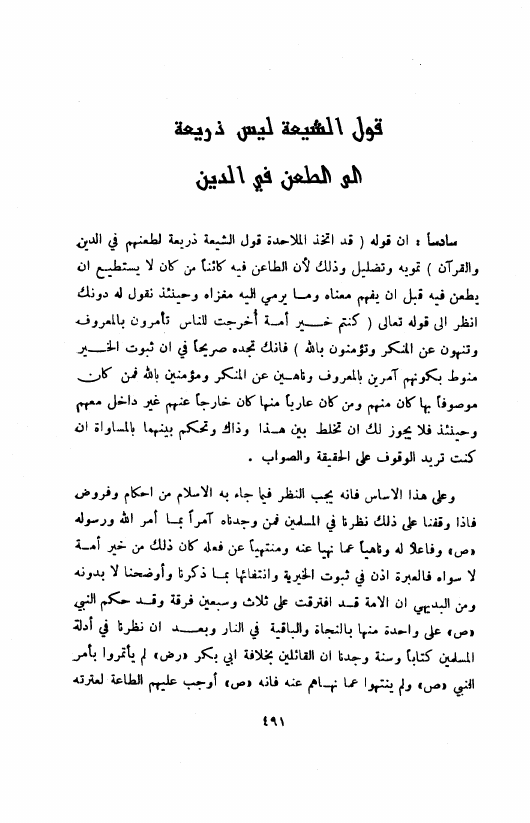 قول الشيعة ليس ذريعة
الى الطعن في الدين
سادساً : ان قوله ( قد اتخذ الملاحدة قول الشيعة ذريعة لطعنهم في الدين
والقرآن ) تمويه وتضليل وذلك لأن الطاعن فيه كائناً من كان لا يستطيع ان
يطعن فيه قبل ان يفهم معناه وما يرمي اليه مغزاه وحينئذ نقول له دونك
انظر الى قوله تعالى ( كنتم خير أمة أخرجت للناس تأمرون بالمعروف
وتنهون عن المنكر وتؤمنون بالله ) فانك تجده صريحاً في ان ثبوت الخير
منوط بكونهم آمرين بالمعروف وناهين عن المنكر ومؤمنين بالله فمن كان
موصوفاً بها كان منهم ومن كان عارياً منها كان خارجاً عنهم غير داخل معهم
وحينئذ فلا يجوز لك ان تخلط بين هذا وذاك وتحكم بينهما بالمساواة ان
كنت تريد الوقوف على الحقيقة والصواب .
وعلى هذا الاساس فانه يجب النظر فيما جاء به الاسلام من احكام وفروض
فاذا وقفنا على ذلك نظرنا في المسلمين فمن وجدناه آمراً بما أمر الله ورسوله
«ص» وفاعلا له وناهياً عما نهيا عنه ومنتهياً عن فعله كان ذلك من خير أمة
لا سواه فالعبرة اذن في ثبوت الخيرية وانتفائها بما ذكرنا وأوضحنا لا بدونه
ومن البديهي ان الامة قد افترقت على ثلاث وسبعين فرقة وقد حكم النبي
«ص» على واحدة منها بالنجاة والباقية في النار وبعد ان نظرنا في أدلة
المسلمين كتاباً وسنة وجدنا ان القائلين بخلافة ابي بكر «رض» لم يأتمروا بأمر
النبي «ص» ولم ينتهوا عما نهاهم عنه فانه «ص» أوجب عليهم الطاعة لعترته
٤٩١